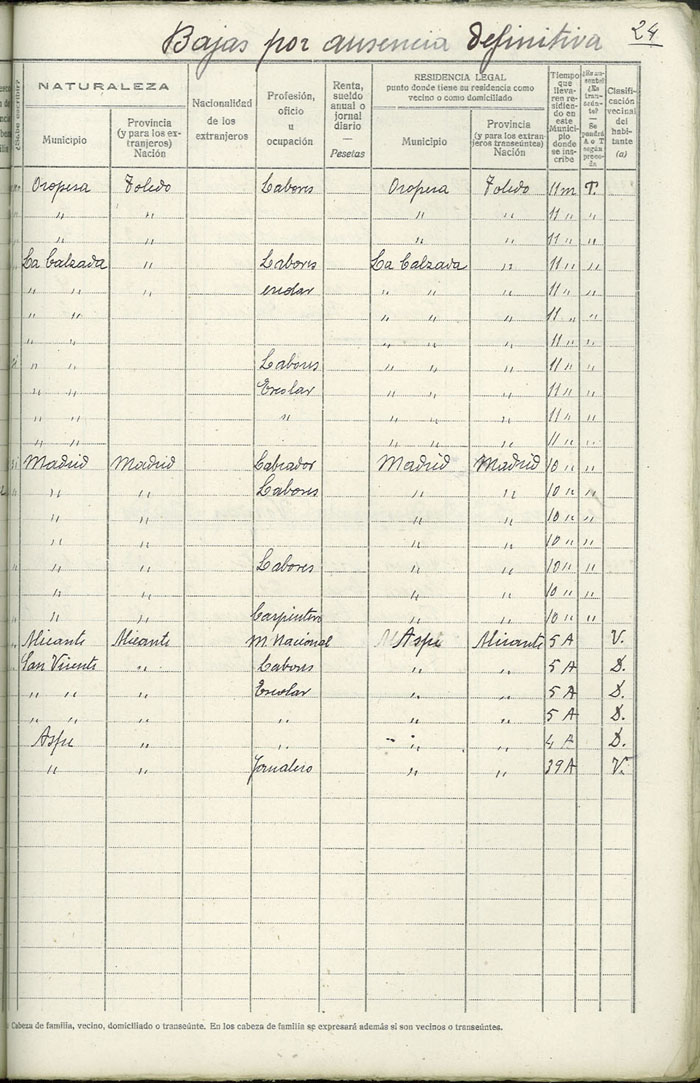 Bajas por ausencia definitiva 24
NATURALEZA
Municipio
Provincia (y para los extranjeros) Nación
Nacionalidad de los extranjeros
Profesión, oficio u ocupación
Renta, sueldo anual o jornal diario — Pesetas
RESIDENCIA LEGAL
punto donde tiene su residencia como vecino o como domiciliado
Municipio
Provincia (y para los extranjeros transeúntes) Nación
Tiempo que llevaren residiendo en este Municipio donde se inscribe
Clasificación vecinal del habitante (a)
Oropesa Toledo Labores Oropesa Toledo 11 m T.
" " " " 11 " "
" " " " 11 " "
La Calzada " Labores La Calzada " 11 " "
" " " escolar " " " 11 " "
" " " " " 11 " "
" " " " " 11 " "
" " Labores " " " 11 " "
" " Escolar " " " 11 " "
" " " " " " 11 " "
" " " " " 11 " "
Madrid Madrid Labrador Madrid Madrid 10 " "
" " Labores " " 10 " "
" " " " 10 " "
" " " " 10 " "
" " Labores " " 10 " "
" " " " 10 " "
" " Carpintero " " 10 " "
Alicante Alicante M. Nacional Aspe Alicante 5 A V.
San Vicente " Labores " " 5 A D.
" " " Escolar " " 5 A D.
" " " " " " 5 A D.
Aspe " " " " 4 A D.
" " Jornalero " " 39 A V.
Cabeza de familia, vecino, domiciliado o transeúnte. En los cabeza de familia se expresará además si son vecinos o transeúntes.